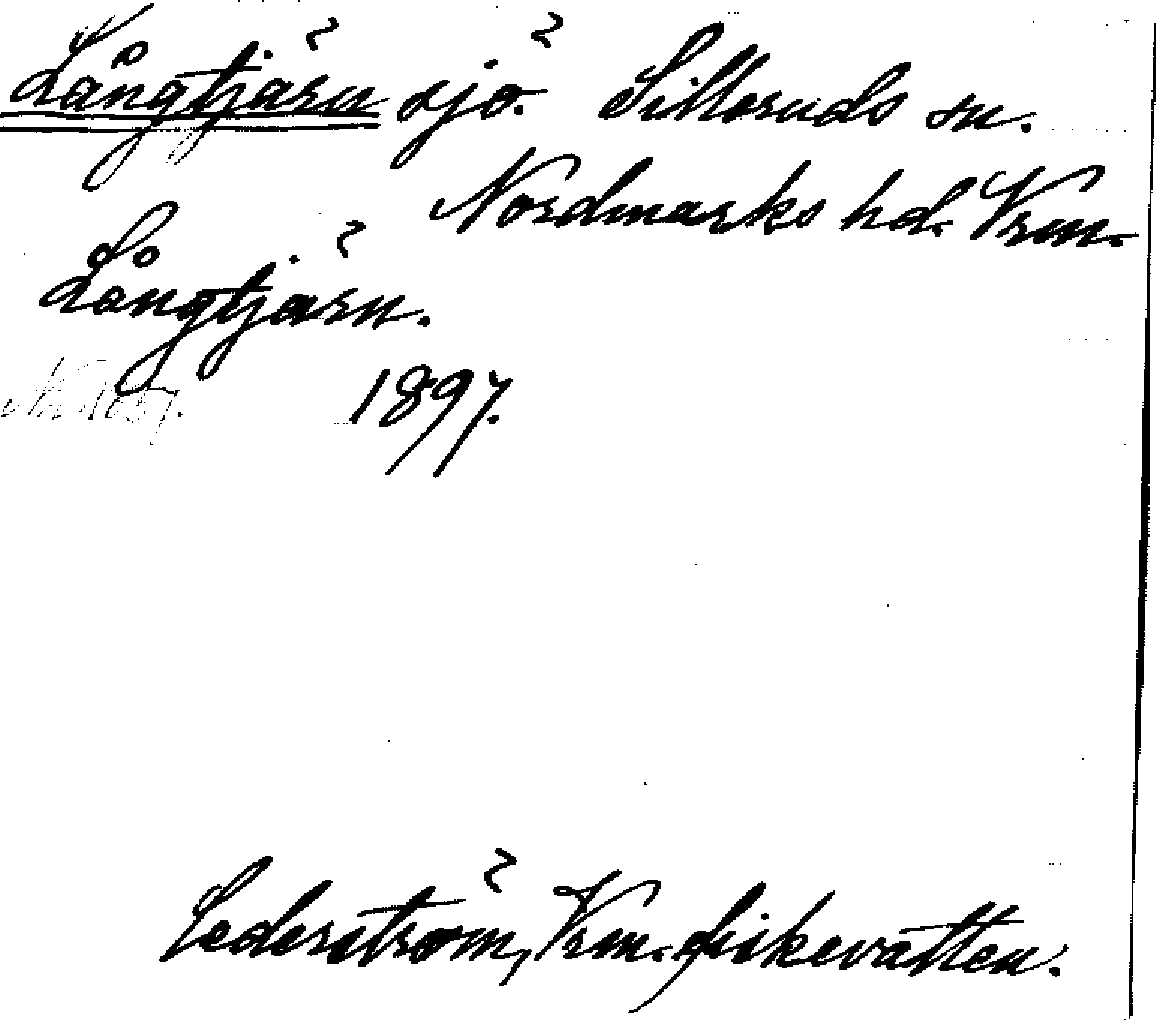 Långtjärn sjö. Silleruds sn.
Nordmarks hd. Vrm.
Långtjärn.
1897.
Cederström, Vrm. fiskevatten.